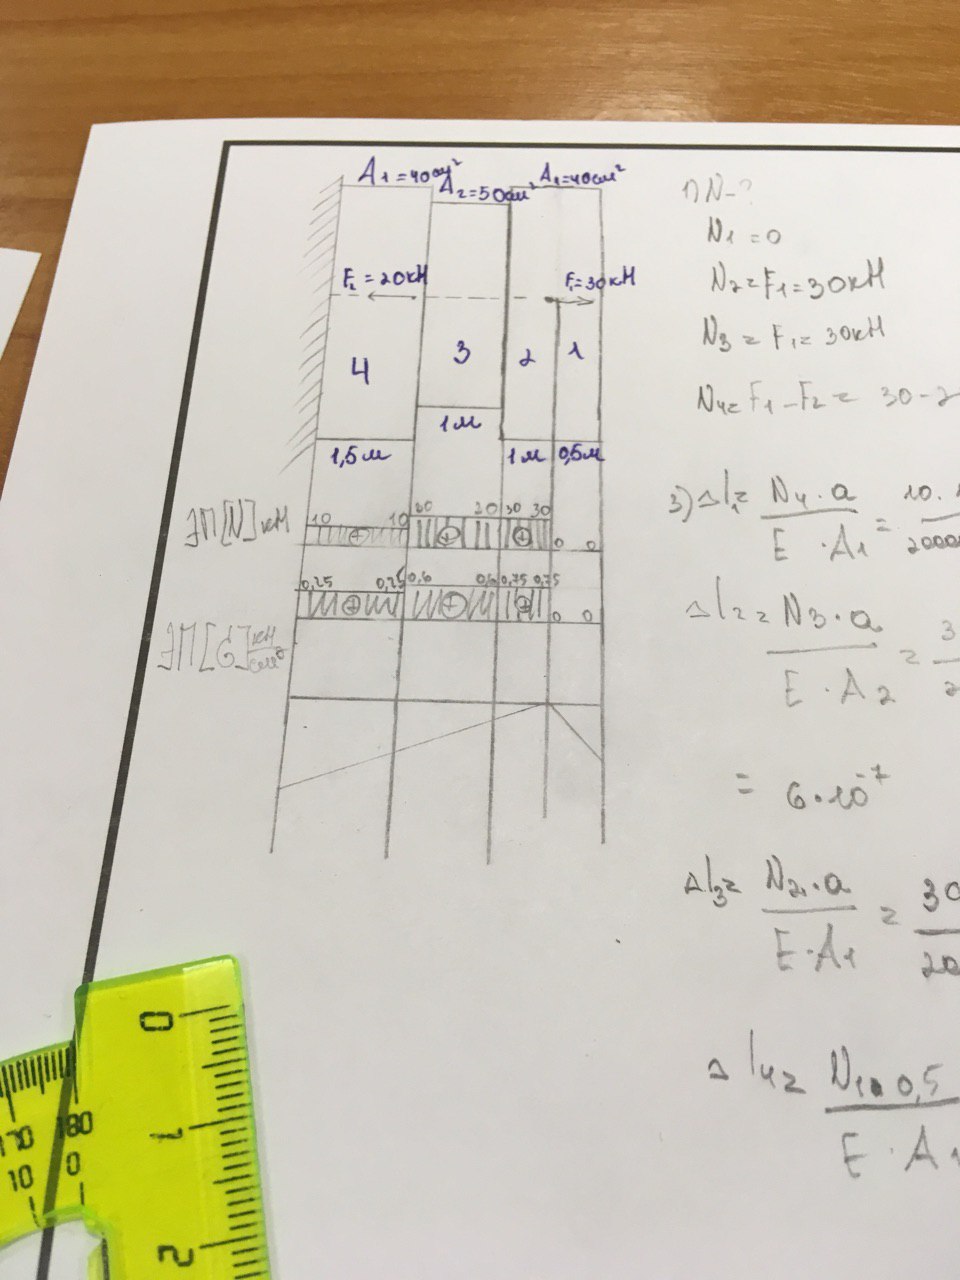 A₁=40см²
A₂=50см²
A₁=40см²
F₂=20кН
F₁=30кН
4
3
2
1
1,5м
1м
1м
0,5м
ЭП[N]кН
10 10 20 30 30
0 0
0,25 0,6 0,6 0,75 0,75
0 0
1) N-?
N₁=0
N₂=F₁=30кН
N₃=F₁=30кН
N₄=F₁-F₂= 30-2
3) Δl₁= N₄·a / E·A₁ = 10. / 2000
Δl₂= N₃·a / E·A₂ = 3 / 2
= 6·10⁻⁷
Δl₃= N₂·a / E·A₁ = 30 / 20
Δl₄= N₁·0,5 / E·A₁
0
1
2
180
170
0
10